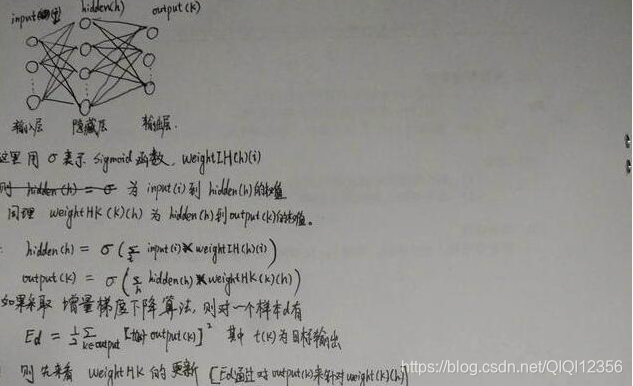 input(i) hidden(h) output(k)
输入层 隐藏层 输出层.
这里用 σ 表示 sigmoid 函数, weightIH(h)(i)
则 hidden(h) = σ 为 input(i) 到 hidden(h) 的权值
同理 weightHK(k)(h) 为 hidden(h) 到 output(k) 的权值。
hidden(h) = σ(Σi input(i)*weightIH(h)(i))
output(k) = σ(Σh hidden(h)*weightHK(k)(h))
如果采取 增量梯度下降算法, 则对一个样本d有
Ed = 1/2 Σ k∈output [t(k)-output(k)]² 其中 t(k) 为目标输出
则先来看 weightHK 的更新 [Ed通过对output(k)来针对weight(k)(h)]
https://blog.csdn.net/QIQI12356